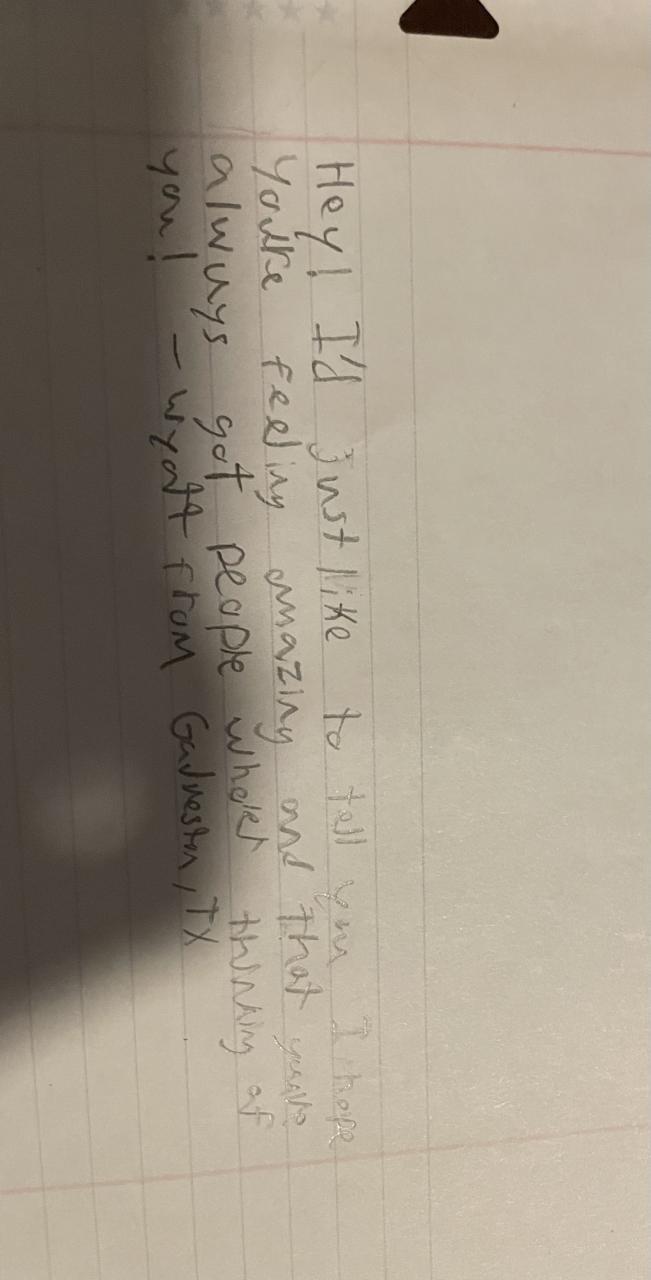 Hey! I'd just like to tell you I hope
you're feeling amazing and that you've
always got people who're thinking of
you! - Wyatt from Galveston, TX